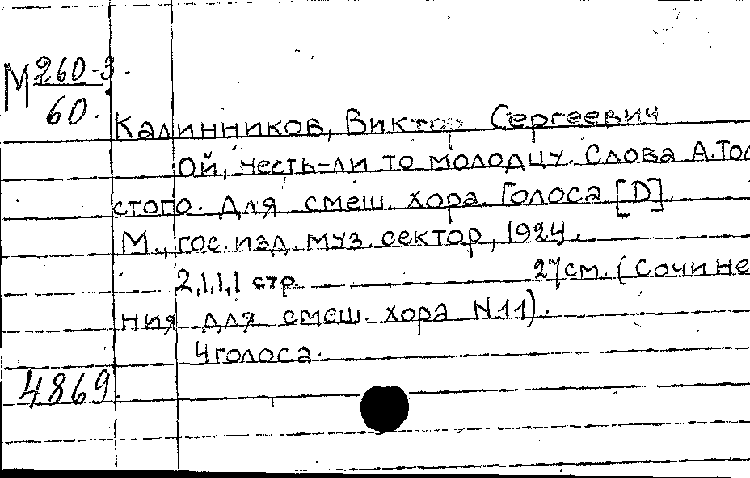 М 260-3
60.
Калинников, Виктор Сергеевич
Ой, честь-ли то молодцу. Слова А.Тол
стого. Для смеш. хора. Голоса [D]
М., гос. изд. муз. сектор, 1924.
2,1,1,1 стр 27см. (Сочине
ния для смеш. хора N11).
4 голоса.
4869.